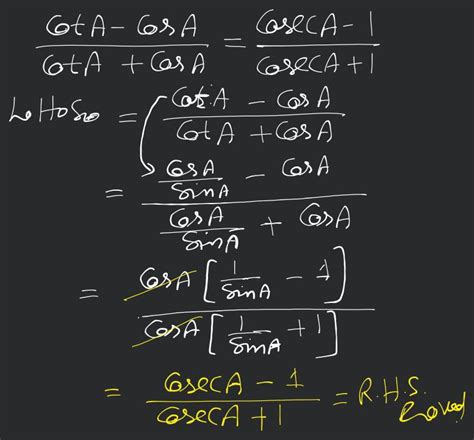 CotA - CosA / CotA + CosA = CosecA - 1 / CosecA + 1
L.H.S. = CotA - CosA / CotA + CosA
= CosA/SinA - CosA / CosA/SinA + CosA
= CosA [1/SinA - 1] / CosA [1/SinA + 1]
= CosecA - 1 / CosecA + 1 = R.H.S.
Proved